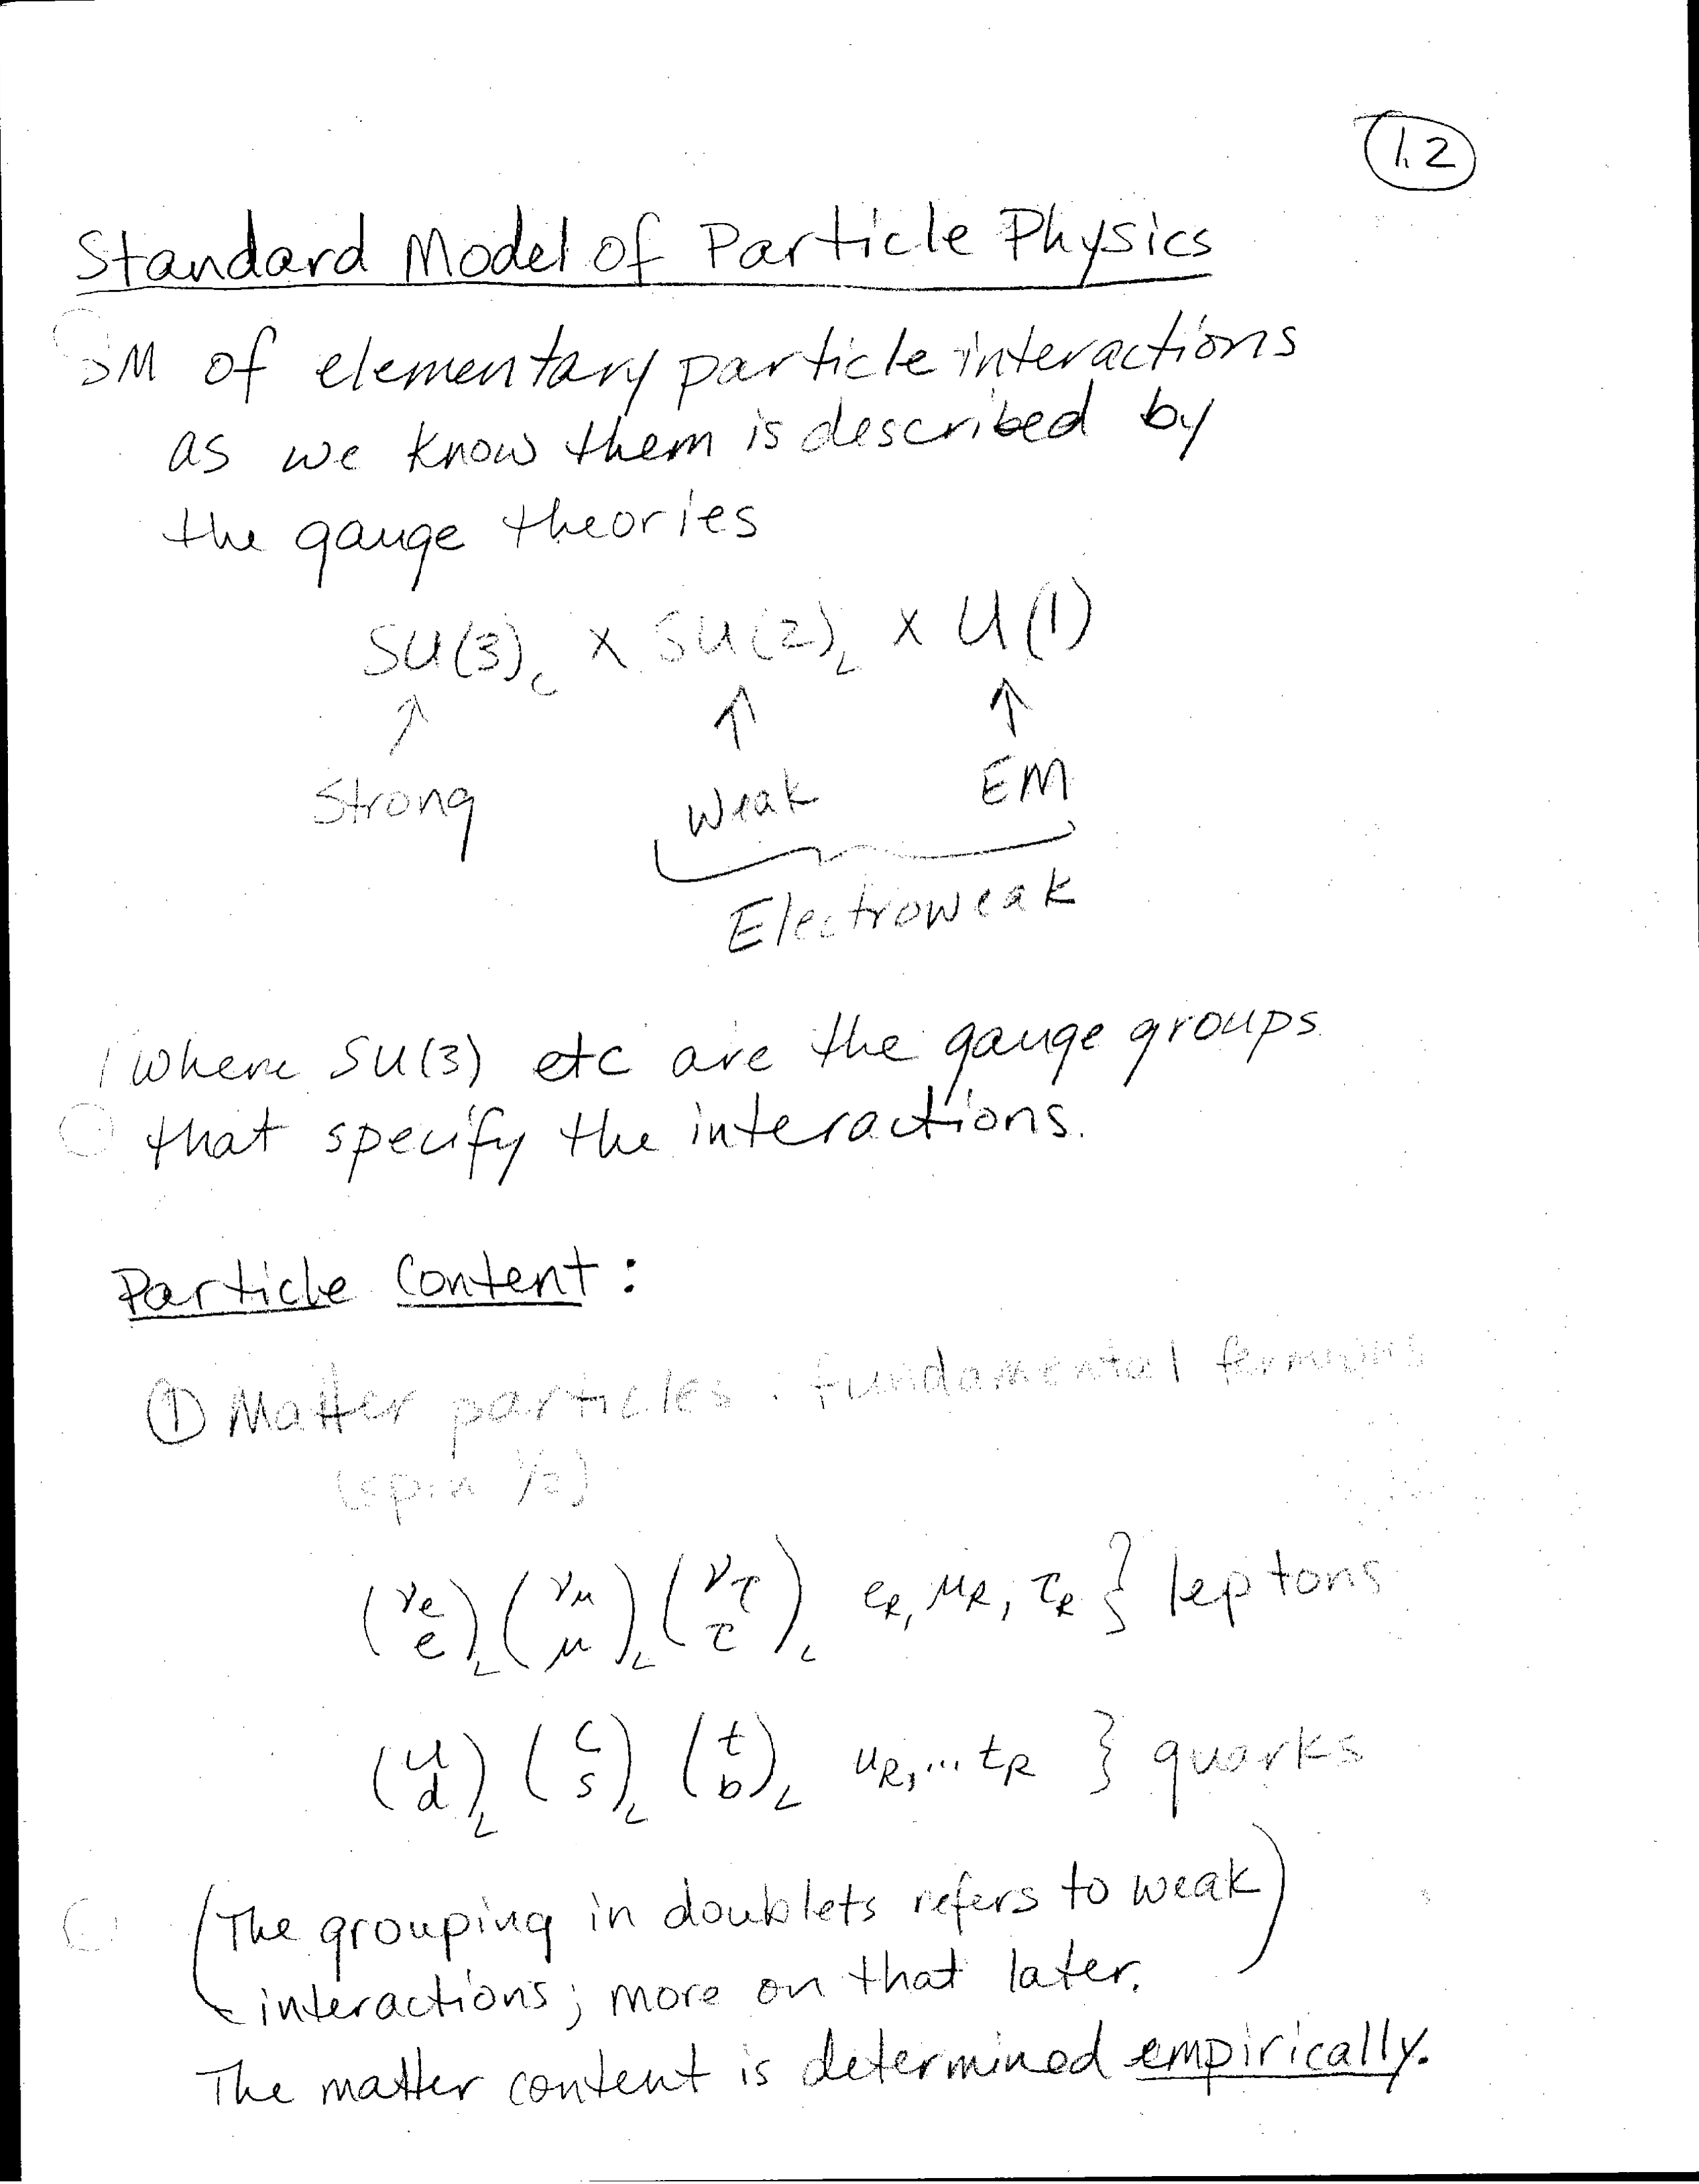 1.2
Standard Model of Particle Physics
SM of elementary particle interactions
as we know them is described by
the gauge theories
SU(3)_c × SU(2)_L × U(1)
↑ ↑ ↑
Strong Weak EM
Electroweak
where SU(3) etc are the gauge groups
that specify the interactions.
Particle Content:
① Matter particles: fundamental fermions
(spin 1/2)
(ν_e e)_L (ν_μ μ)_L (ν_τ τ)_L e_R, μ_R, τ_R } leptons
(u d)_L (c s)_L (t b)_L u_R, ... t_R } quarks
(The grouping in doublets refers to weak
interactions; more on that later.)
The matter content is determined empirically.